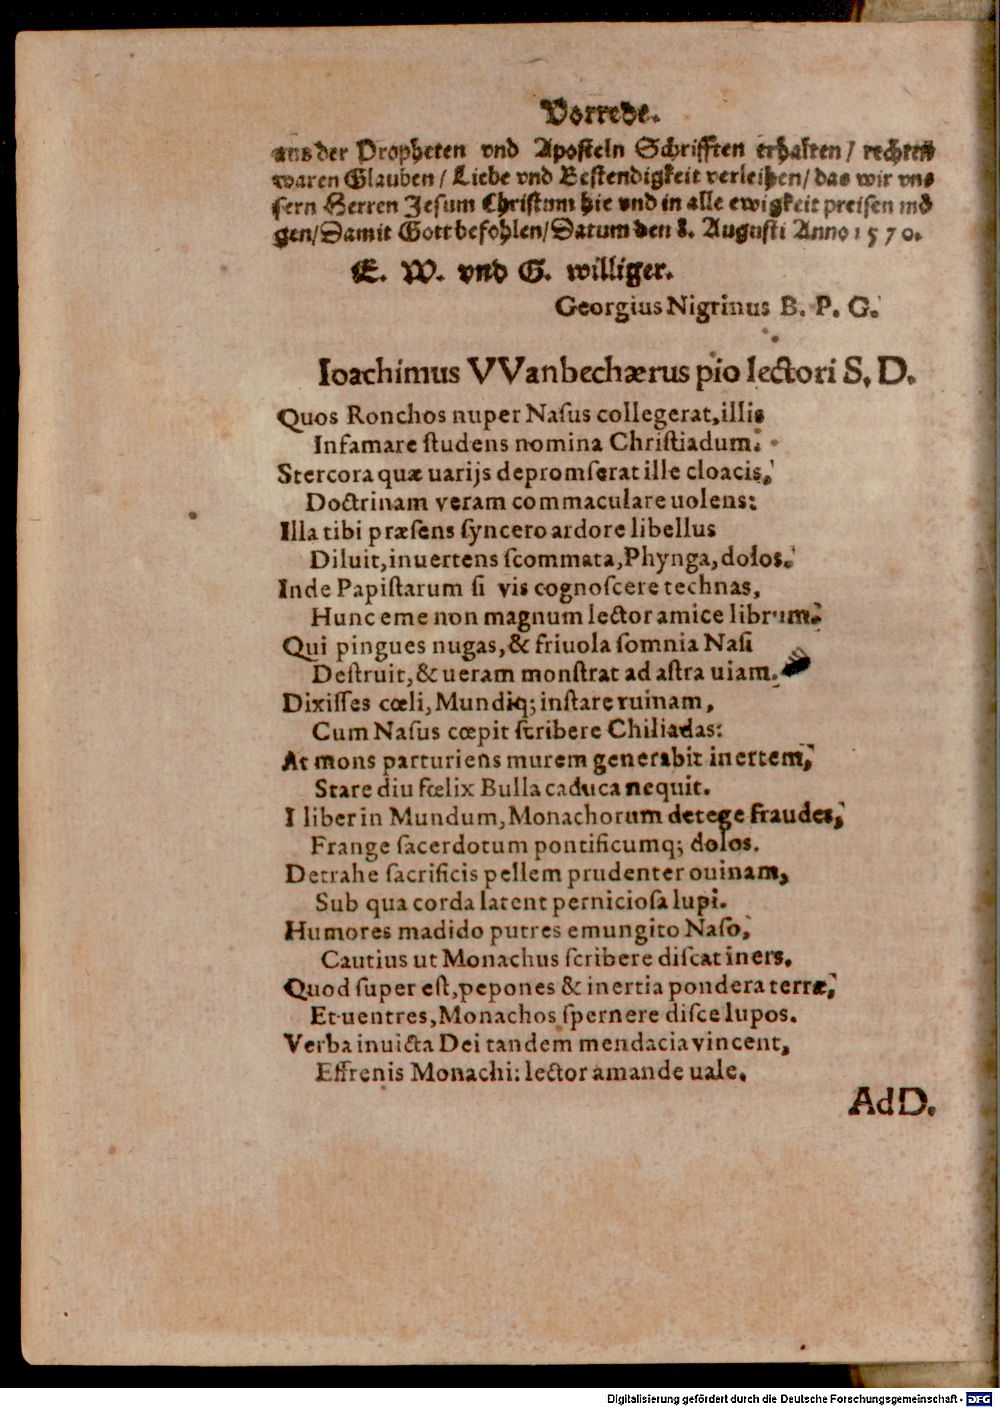 Vorrede.
aus der Propheten vnd Aposteln Schrifften erhalten / rechten
waren Glauben / Liebe vnd Bestendigkeit verleihen / das wir vn-
sern Herren Jesum Christum hie vnd in alle ewigkeit preisen mö
gen / Damit Gott befohlen / Datum den 8. Augusti Anno 1570.
E. W. vnd G. williger.
Georgius Nigrinus B. P. G.
Ioachimus VVanbechærus pio lectori S. D.
Quos Ronchos nuper Nasus collegerat, illis
Infamare studens nomina Christiadum:
Stercora quæ uarijs depromserat ille cloacis,
Doctrinam veram commaculare uolens:
Illa tibi præsens syncero ardore libellus
Diluit, inuertens scommata, Phynga, dolos.
Inde Papistarum si vis cognoscere technas,
Hunc eme non magnum lector amice librum.
Qui pingues nugas, & friuola somnia Nasi
Destruit, & ueram monstrat ad astra uiam.
Dixisses cœli, Mundiq; instare ruinam,
Cum Nasus cœpit scribere Chiliadas:
At mons parturiens murem generabit inertem,
Stare diu fœlix Bulla caduca nequit.
I liber in Mundum, Monachorum detege fraudes,
Frange sacerdotum pontificumq; dolos.
Detrahe sacrificis pellem prudenter ouinam,
Sub qua corda latent perniciosa lupi.
Humores madido putres emungito Naso,
Cautius ut Monachus scribere discat iners.
Quod super est, pepones & inertia pondera terræ,
Et uentres, Monachos spernere disce lupos.
Verba inuicta Dei tandem mendacia vincent,
Effrenis Monachi: lector amande uale.
Ad D.
Digitalisierung gefördert durch die Deutsche Forschungsgemeinschaft - DFG